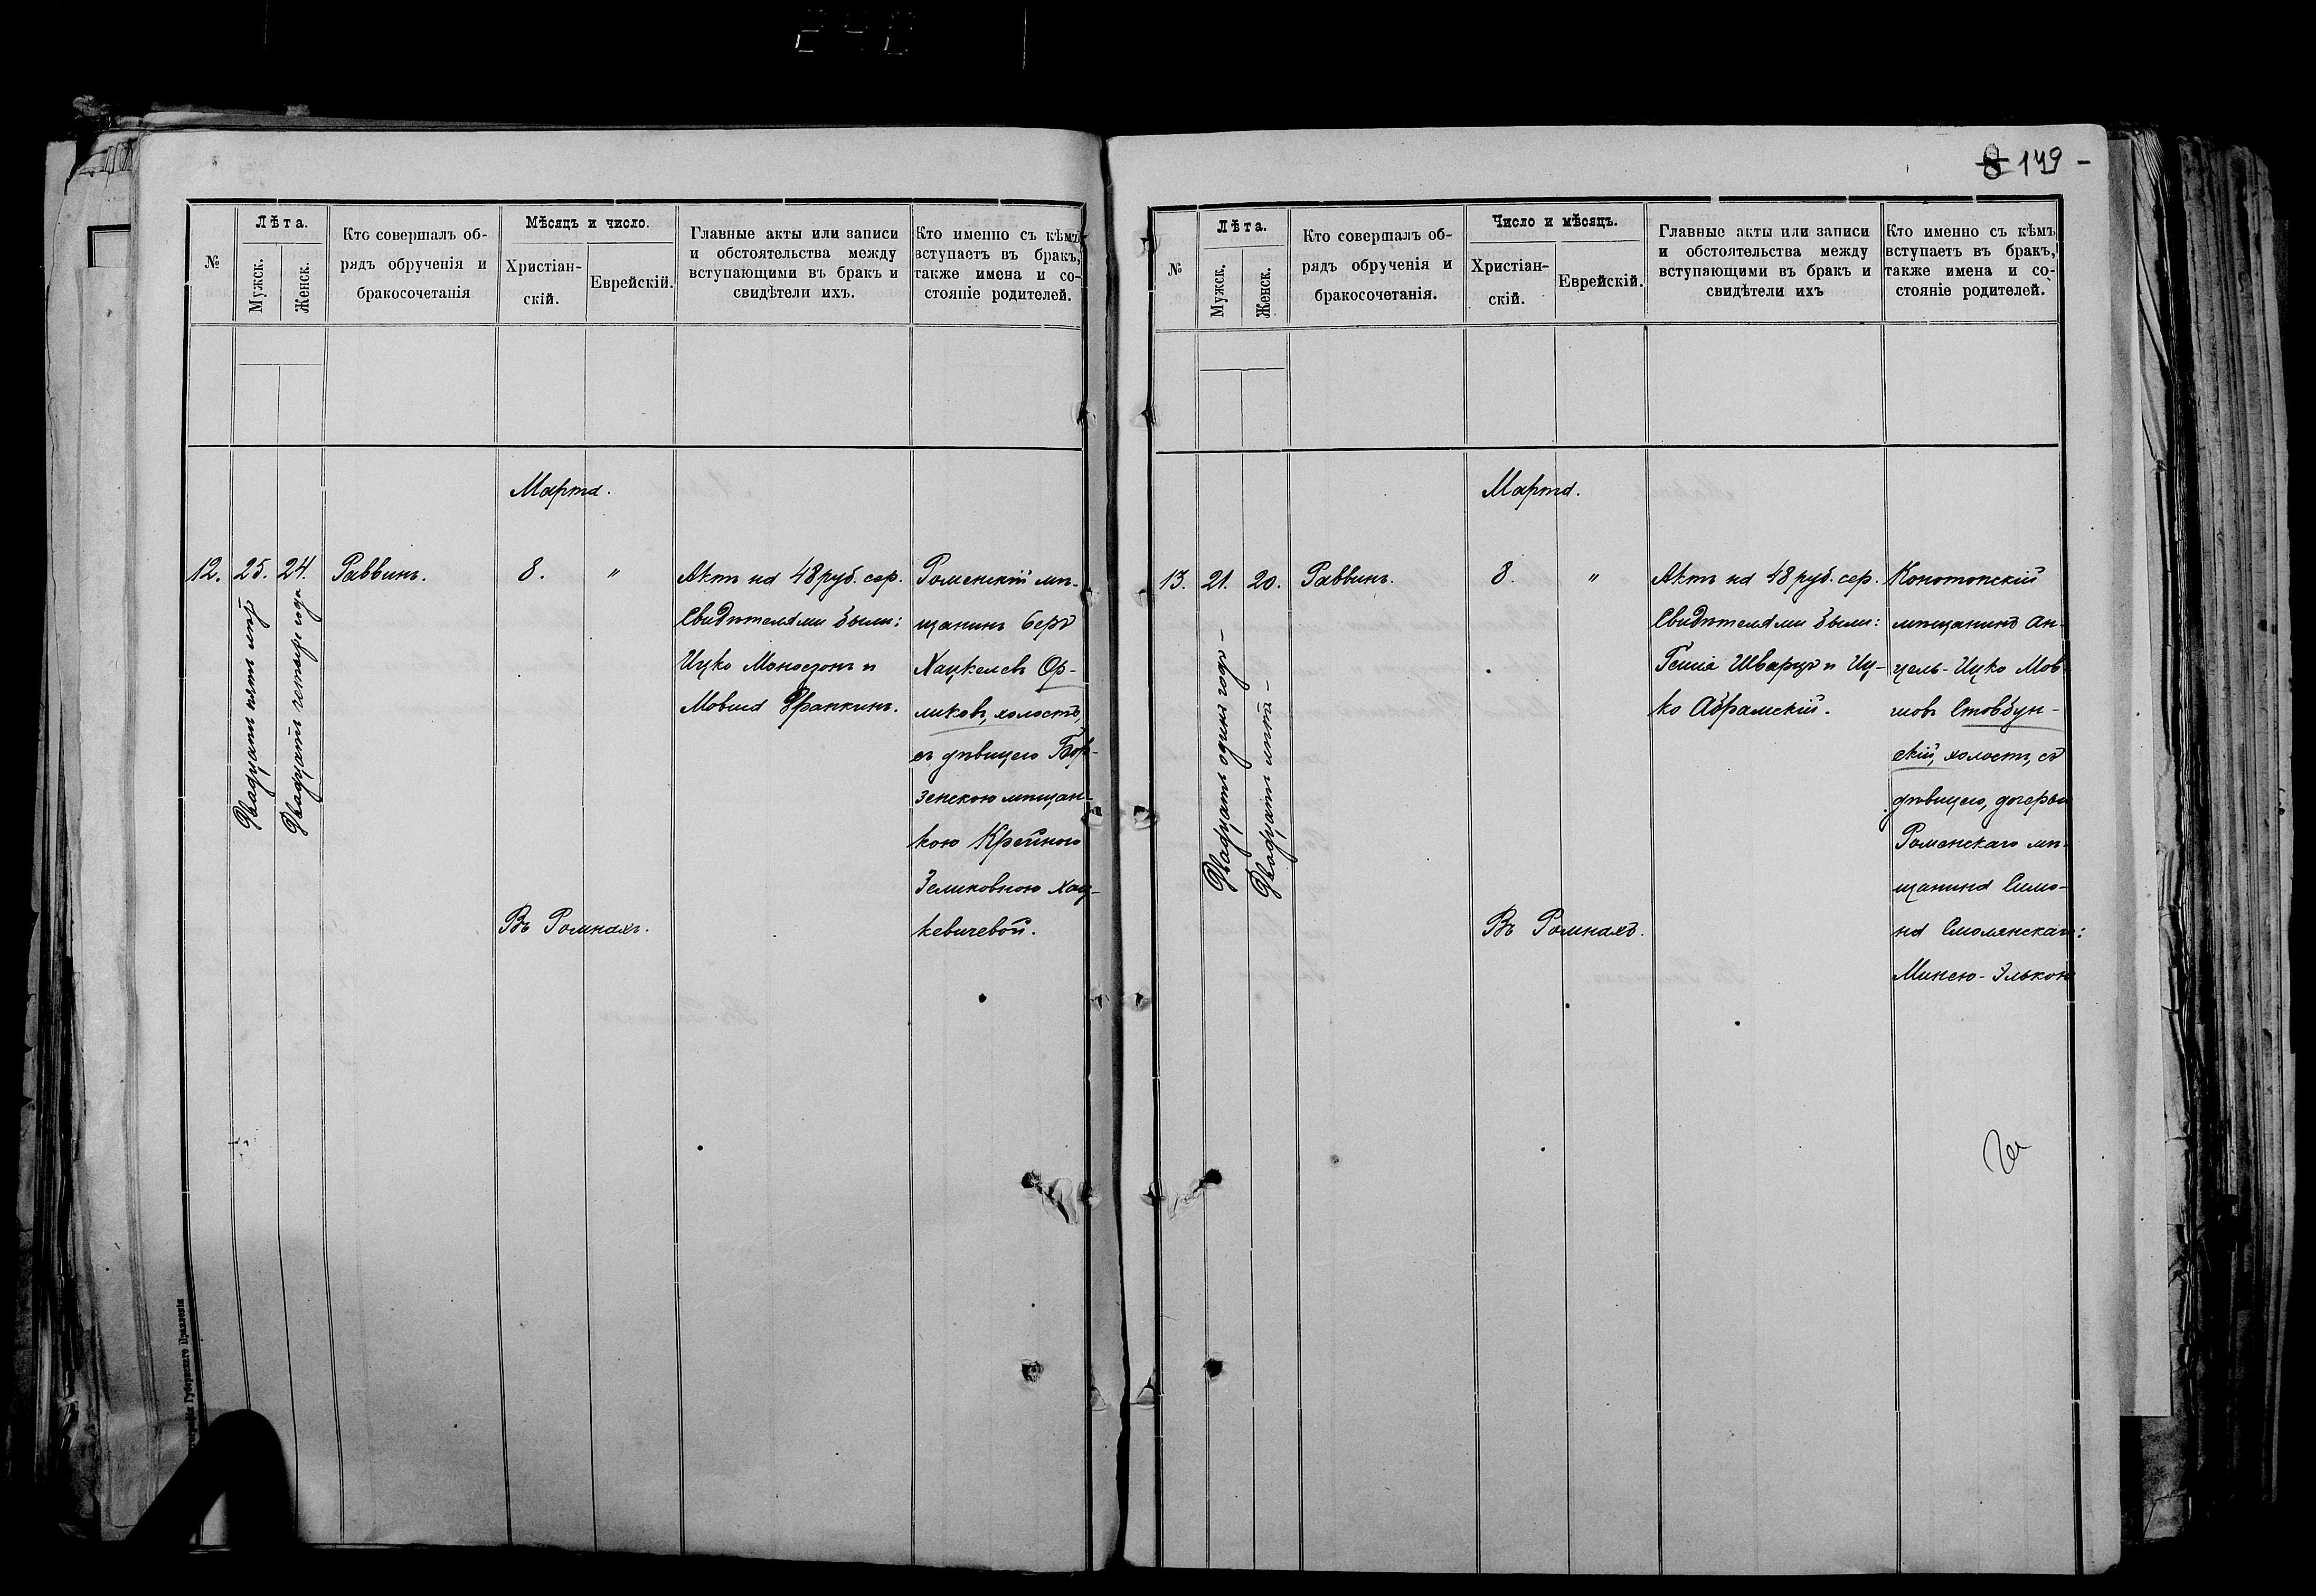 8 149 -
№
Лѣта.
Мужск.
Женск.
Кто совершалъ об-
рядъ обрученія и
бракосочетанія
Мѣсяцъ и число.
Христіан-
скій.
Еврейскій.
Главные акты или записи
и обстоятельства между
вступающими въ бракъ и
свидѣтели ихъ.
Кто именно съ кѣмъ
вступаетъ въ бракъ,
также имена и со-
стояніе родителей.
Марта.
12.
25.
Двадцать пять лѣтъ
24.
Двадцать четыре года
Раввинъ.
8.
"
Въ Ромнахъ.
Актъ на 48 руб. сер.
Свидѣтелями были:
Ицко Моносзонъ и
Мовша Франкинъ.
Роменскій мѣ-
щанинъ Беръ
Хацкелевъ Ор-
ликовъ, холостъ,
съ дѣвицею Бор-
зенскою мѣщан-
кою Крейною
Зеликовною Хац-
кевичевой.
Губернскаго Правленія
№
Лѣта.
Мужск.
Женск.
Кто совершалъ об-
рядъ обрученія и
бракосочетанія.
Число и мѣсяцъ.
Христіан-
скій.
Еврейскій.
Главные акты или записи
и обстоятельства между
вступающими въ бракъ и
свидѣтели ихъ
Кто именно съ кѣмъ
вступаетъ въ бракъ,
также имена и со-
стояніе родителей.
Марта.
13.
21.
Двадцать одинъ годъ -
20.
Двадцать лѣтъ -
Раввинъ.
8.
"
Въ Ромнахъ.
Актъ на 48 руб. сер.
Свидѣтелями были:
Гешіа Шварцъ и Иц-
ко Абрамскій.
Конотопскій
мѣщанинъ Ан-
цель-Ицко Мов-
шовъ Стовбун-
скій, холостъ, съ
дѣвицею, дочерью
Роменскаго мѣ-
щанина Симо-
на Смолянскаго:
Минею-Элькою